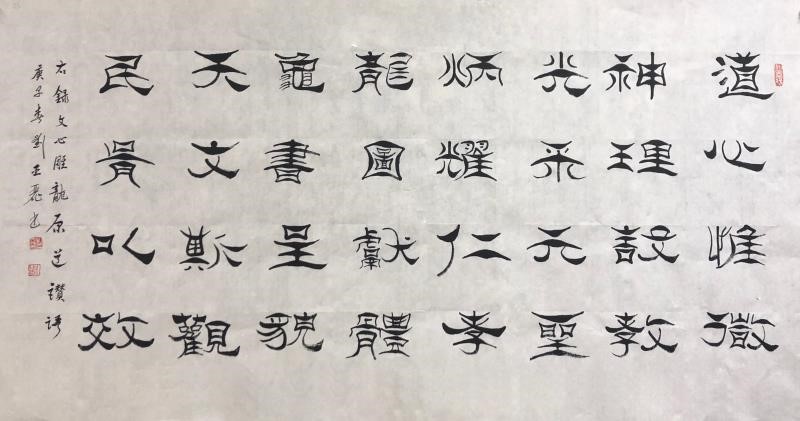 道心惟微
神理設教
光采元聖
炳耀仁孝
龍圖獻體
龜書呈貌
天文斯觀
民胥以效
右録文心雕龍原道讃語
庚子春劉玉麗書